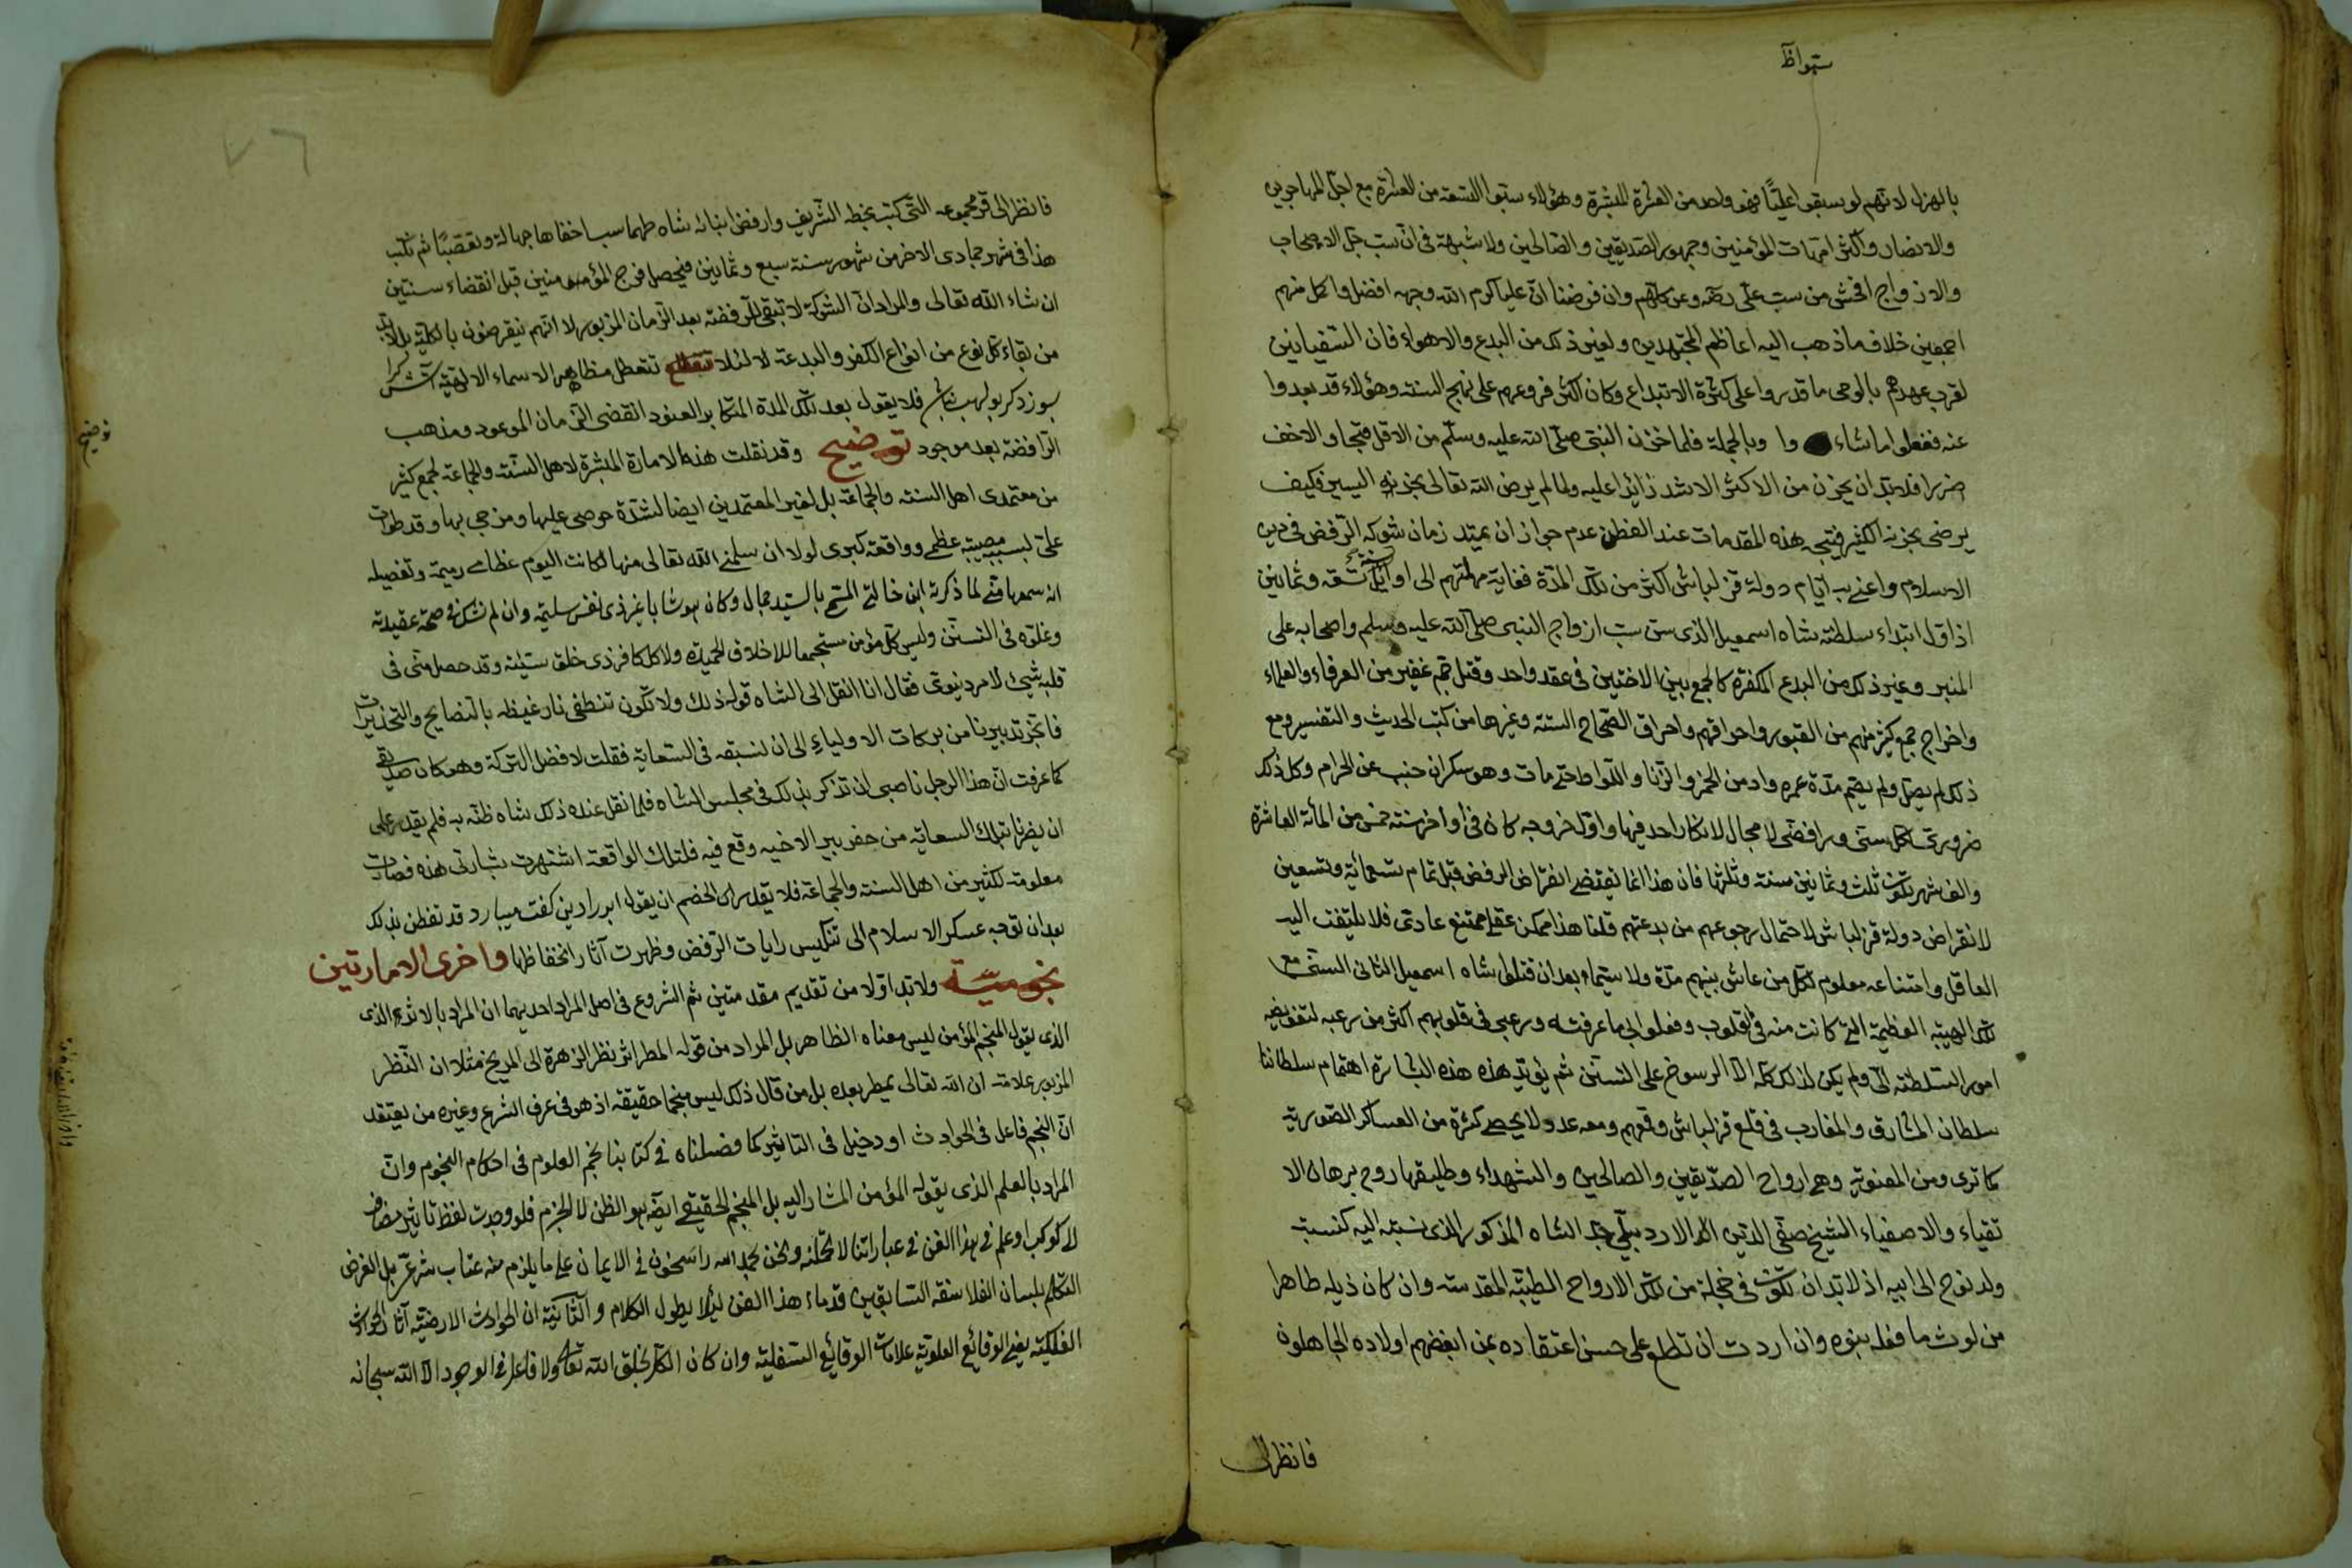 سبوا ظ
بالهزل لانهم لو يسبقوا عليًّا فهو واحد من العشرة المبشرة وهؤلاء سبوا التسعة من العشرة مع اجل المهاجرين
والانصار واكثر امهات المؤمنين وجمهور الصديقين والصالحين ولا شبهة فى ان سب جل الاصحاب
والازواج افحش من سب على رضه وعن كلهم وان فرضنا ان عليا كرم الله وجهه افضل واكمل منهم
اجمعين خلاف ما ذهب اليه اعاظم المجتهدين ولغير ذلك من البدع والاهواء فان السفيانين
لقرب عهدهم بالوحى ما قدروا على كثرة الابتداع وكان اكثر فروعهم على نهج السنة وهؤلاء قد بعدوا
عنه ففعلوا ما شاء وا وبالجملة فلما حزن النبى صلى الله عليه وسلم من الاقل قبحا والاخف
ضررا فلابد ان يحزن من الاكثر الاشد زائدا عليه ولما لم يرض الله تعالى بحزنه اليسير فكيف
يرضى بحزنه الكثير فينتج هذه المقدمات عند الفطن عدم جواز ان يمتد زمان شوكه الرفض فى دين
الاسلام واعنى به ايام دولة قزلباش اكثر من تلك المدة فغاية مهلتهم الى اوايل سنة تسعة وثمانين
اذ اول ابتداء سلطنة شاه اسمعيل الذى سن سب ازواج النبى صلى الله عليه وسلم واصحابه على
المنبر وغير ذلك من البدع المكفرة كالجمع بين الاختين فى عقد واحد وقتل جم غفير من العرفاء والعلماء
واخراج جمع كثير منهم من القبور واحراقهم واحراق الصحاح الستة وغيرها من كتب الحديث والتفسير ومع
ذلك لم يصل ولم يصم مدة عمره وادمن الخمر والزنا واللواط حتى مات وهو سكران جنب عن الحرام وكل ذلك
ضرورى لكل سنى ورافضى لا مجال لانكار احد فيها واول خروجه كان فى اواخر سنة خمس من المأة العاشرة
والف شهر تكون ثلث وثمانين سنة وثلثها فان هذا انما يقتضى انقراض الرفض قبل تمام تسعمائة وتسعين
لانقراض دولة قزلباش لاحتمال رجوعهم من بدعتهم قلنا هذا ممكن عقلى ممتنع عادى فلا يلتفت اليه
العاقل وامتناعه معلوم لكل من عاش بينهم مدة ولا سيما بعد ان قتلوا شاه اسمعيل الثانى السنى مع
تلك الهيبة العظيمة التى كانت منه فى القلوب وفعلوا بى ما عرفته ورعبى فى قلوبهم اكثر من رعبه لتفويضه
امور السلطنة الىّ ولم يكن لذلك كله الا الرسوخ على التسنن ثم يؤيد هذه هذه البشارة اهتمام سلطاننا
سلطان المشارق والمغارب فى قلع قزلباش وقمعهم ومعه عدد لا يحصى كثرة من العساكر الصورية
كما ترى ومن المعنوية وهم ارواح الصديقين والصالحين والشهداء وطليقها روح برهان الا
تقياء والاصفياء الشيخ صفى الدين الاردبيلى جد الشاه المذكور الذى نسبته اليه كنسبة
ولد نوح الى ابيه اذ لابد ان تكون فى خجلة من تلك الارواح الطيبة المقدسة وان كان ذيله طاهرا
من لوث ما فعله بنوه وان اردت ان تطلع على حسن اعتقاده بمن ابغضهم اولاده الجاهلون
فانظر الى
فانظر الى قره مجموعه التى كتب بخطه الشريف وارفض ابنائه شاه طهماسب اخفاها جهالة وتعصبًا ثم نكتب
هذا فى شهر جمادى الاخر من شهور سنة سبع وثمانين فيحصل فرج المؤمنين قبل انقضاء سنتين
ان شاء الله تعالى والمراد ان الشوكة لا تبقى للرفضة بعد الزمان المزبور لا انهم ينقرضون بالكلية بل لابد
من بقاء كل نوع من انواع الكفر والبدعة لا لئلا تتعطل مظاهر الاسماء الالهية آتش كرا
بسوزد كر بولهب نباش فلا يقول بعد تلك المدة المكابر العنود انقضى الزمان الموعود ومذهب
الرافضة بعد موجود توضيح وقد نقلت هذه الامارة المبشرة لاهل السنة والجماعة لجمع كثير
توضيح
من معتمدى اهل السنة والجماعة بل لغير المعتمدين ايضا لشدة حرصى عليها ومزجى بها وقد طرات
علىّ بسببه مصيبة عظمى وواقعة كبرى لولا ان سلمنى الله تعالى منها لكانت اليوم عظامى رميمة وتفصيله
انه سمعها منى لما ذكرته ابن خالتى المسمى بالسيد جمال وكان هوشابا غير ذى نفس سليمة وان لم نشك فى صحة عقيدته
وغلوه فى التسنن وليس كل مؤمن مستجمعا للاخلاق الحميدة ولا كل كافر ذى خلق سيئة وقد حصل منى فى
قلبه شيئ لامر دنيوى فقال انا انقل الى الشاه قوله ذلك ولا تكون تنطفى نار غيظه بالنصايح والتحذيرات
فانجز تدبيرنا من بركات الاولياء الى ان نسبقه فى السعاية فقلت لافضل التركة وهو كان صديقى
كما عرفت ان هذا الرجل ناصبى ان تذكر بذلك فى مجلس الشاه فلما نقل عنده ذلك شاه ظنه به فلم يقدر على
ان يضرنا بتلك السعاية من حفر بير الاخيه وقع فيه فلتلك الواقعة اشتهرت بشارتى هذه فصارت
معلومة لكثير من اهل السنة والجماعة فلا يقدر الخصم ان يقول ابر را ديد كفت ميبارد قد تفطن بذلك
بعد ان توجه عسكر الاسلام الى تنكيس رايات الرفض وظهرت آثار انخفاظها واخرى الامارتين
نجومية ولابد اولا من تقديم مقدمتين ثم الشروع فى اصل المراد احديهما ان المراد بالاثر الذى
الذى يقول المنجم المؤمن ليس معناه الظاهر بل المراد من قوله المطر اثر نظر الزهرة الى المريخ مثلا ان النظر
المزبور علامة ان الله تعالى يمطر بعده بل من قال ذلك ليس منجما حقيقة اذ هو فى عرف الشرع وغيره من يعتقد
ان النجم فاعل فى الحوادث او دخيل فى التاثير كما فصلناه فى كتابنا نجم العلوم فى احكام النجوم وان
المراد بالعلم الذى يقوله المؤمن المشار اليه بل المنجم الحقيقى ايضه هو الظن لا الجزم فلو وجدت لفظ تاثير مضاف
لا كوكب او علم فى هذا الفن فى عباراتنا لا تخلنه ونحن بحمد الله راسخون فى الايمان على ما يلزم منه عتاب شرعى بل الغرض
التكلم بلسان الفلاسفة السابقين قدماء هذا الفن لئلا يطول الكلام والثانية ان الحوادث الارضية آثار الحوادث
الفلكية يعنى الوقائع العلوية علامات الوقائع السفلية وان كان الكل بخلق الله تعالى ولا فاعل فى الوجود الا الله سبحانه